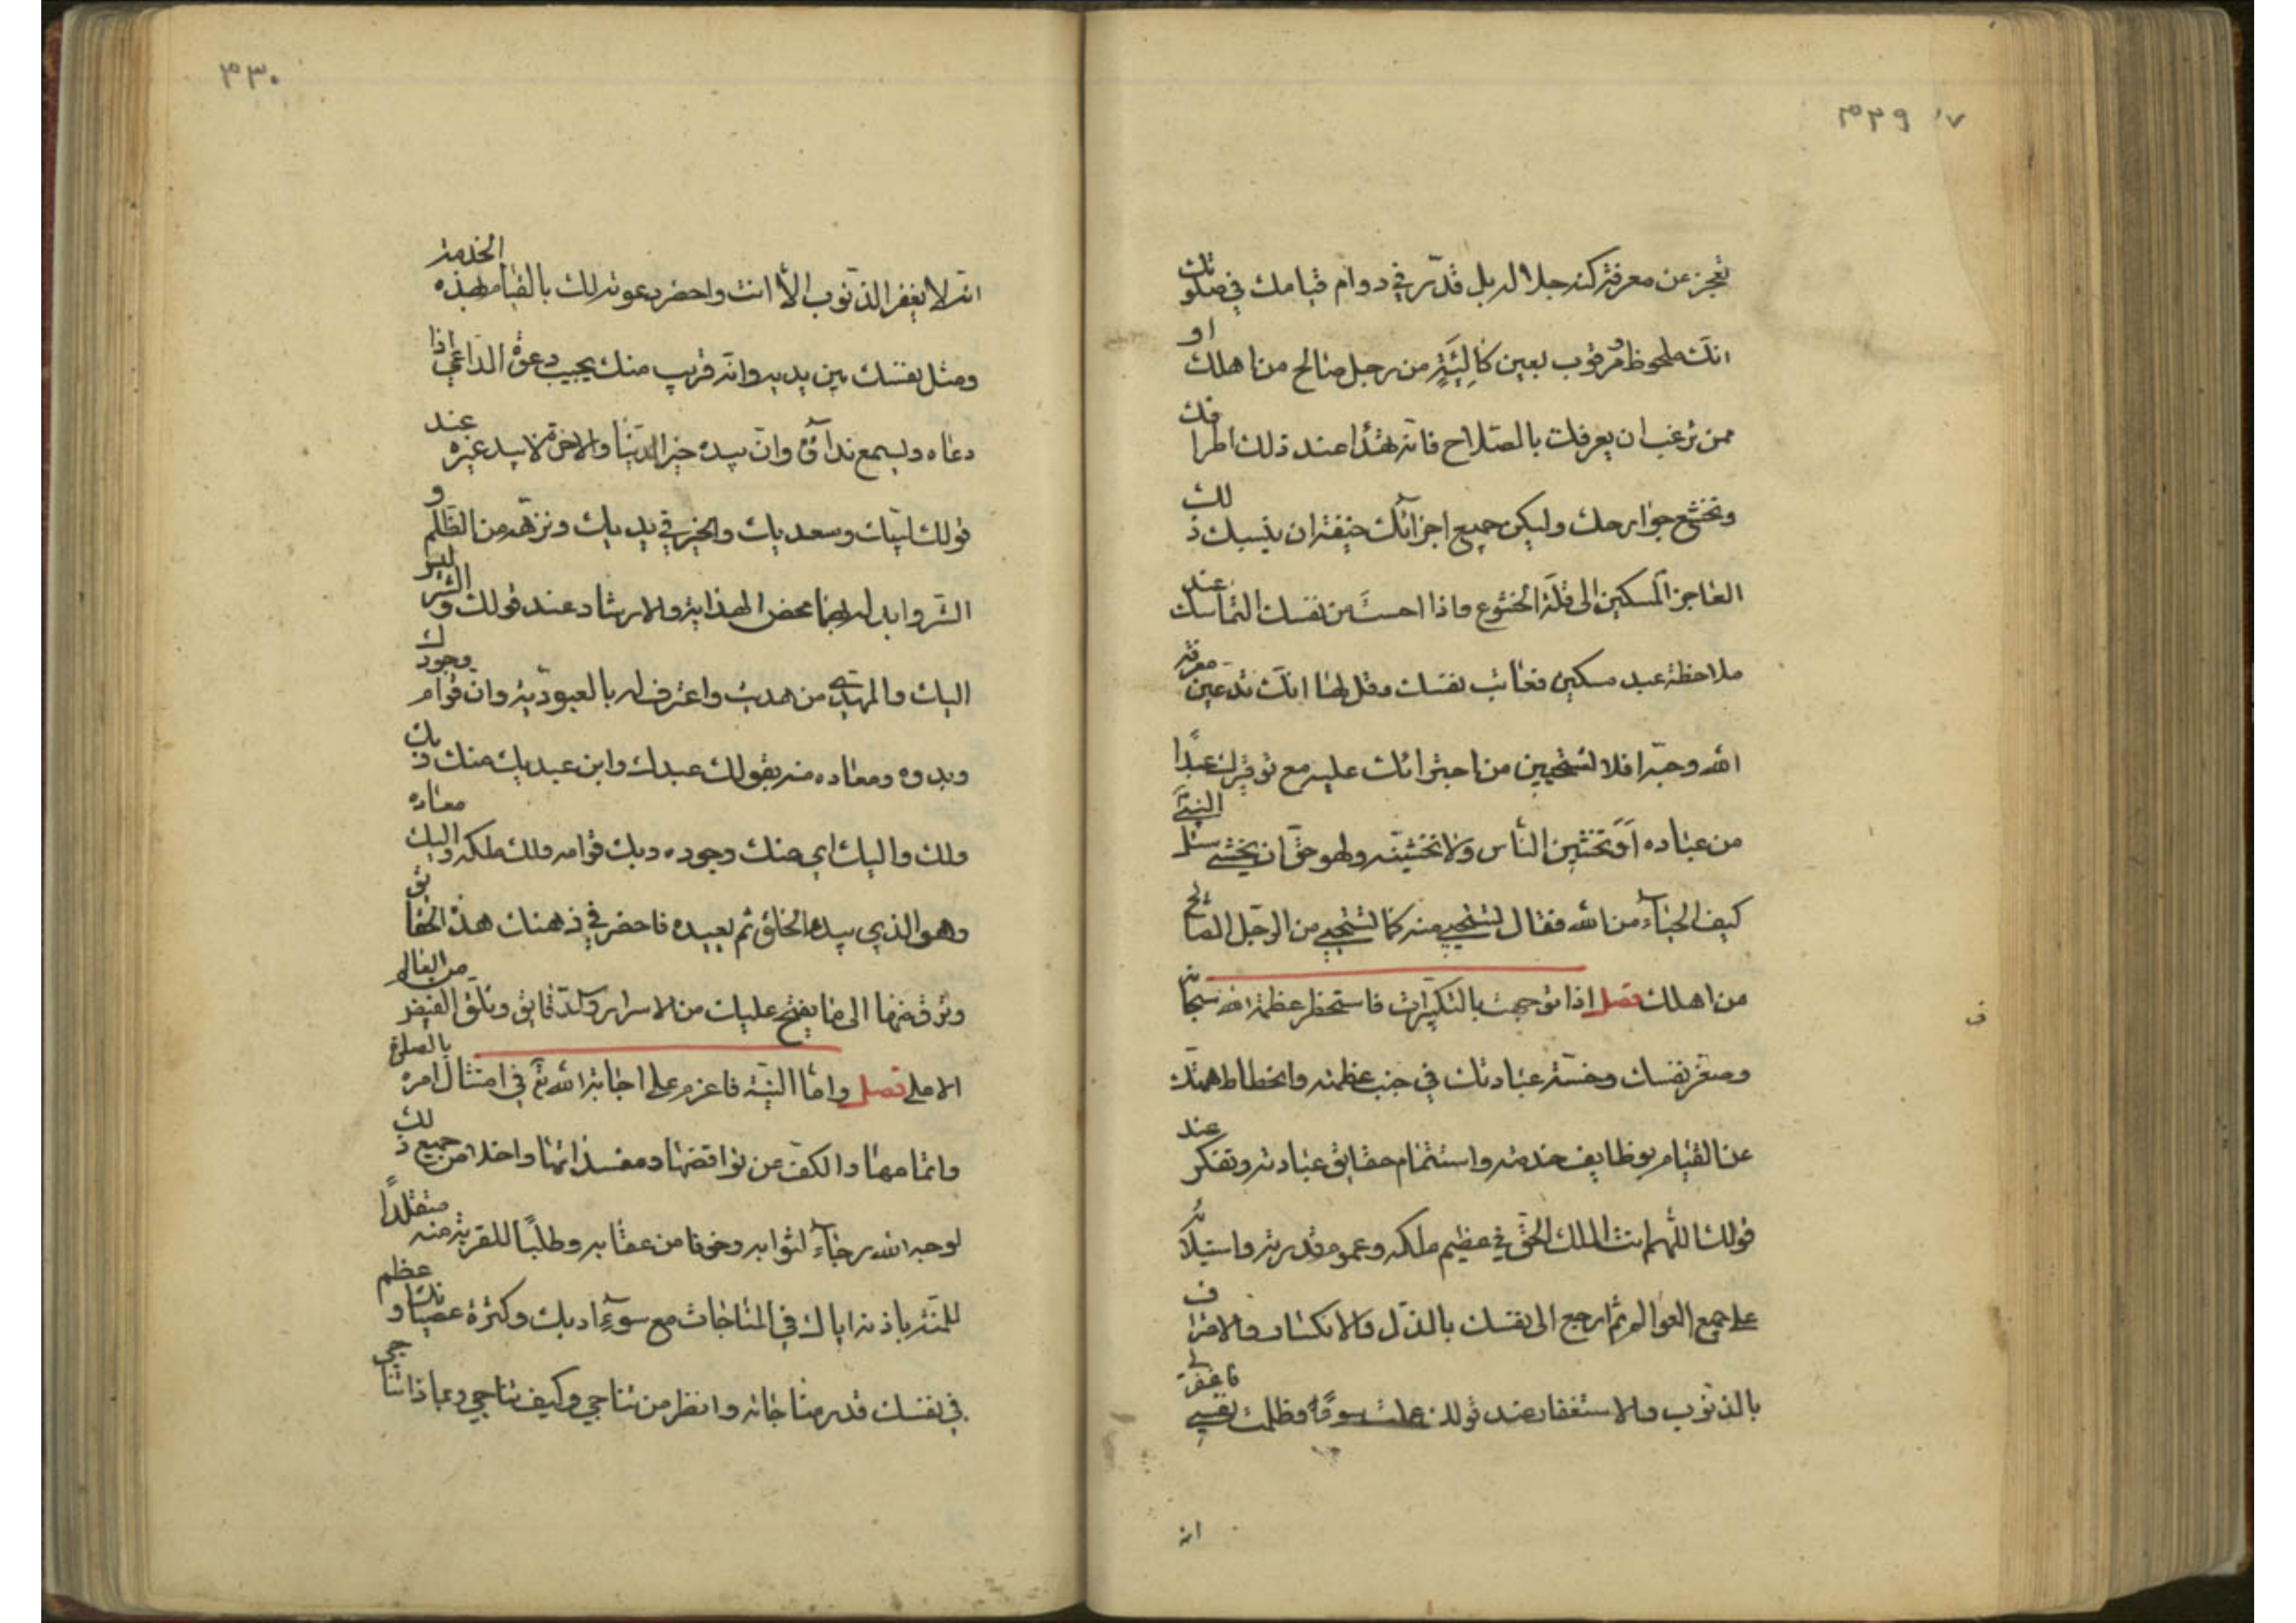 ٣٢٩
تعجز عن معرفة كنه جلاله بل قدّر في دوام قيامك في صلوتك
انك ملحوظ ومرقوب بعين كالئة من رجل صالح من اهلك او
ممن ترغب ان يعرفك بالصلاح فانه تهدأ عند ذلك اطرافك
وتخشع جوارحك وليكن جميع اجزائك خيفة ان ينسبك ذلك
العاجز المسكين الى قلّة الخشوع واذا احست من نفسك التماسك عند
ملاحظة عبد مسكين فعاتب نفسك وقل لها انك تدعين معرفة
الله وحبّه افلا تستحيين من اجترائك عليه مع توقيرك عبدًا
من عباده اَوَتخشين الناس ولا تخشينه وهو حق ان يخشى سئل النبيّ
كيف الحياء من الله فقال تستحيي منه كما تستحيي من الرجل الصالح
من اهلك فصل اذا توجهت بالتكبيرات فاستحضر عظمة الله سبحانه
وصغر نفسك وخسّة عبادتك في جنب عظمته وانحطاط همتك
عن القيام بوظايف خدمته واستتمام حقايق عبادته وتفكر عند
قولك اللهم انت الملك الحق في عظيم ملكه وعموم قدرته واستيلائه
على جميع العوالم ثم ارجع الى نفسك بالذل والانكسار والاعتراف
بالذنوب والاستغفار عند قولك عملت سوءًا وظلمت نفسي فاغفر لي
انه
٣٣٠
انه لا يغفر الذنوب الا انت واحضر دعوته لك بالقيام بهذه الخدمة
ومثل نفسك بين يديه وانه قريب منك يجيب دعوة الداعي اذا
دعاه ويسمع نداءه وان بيده خير الدنيا والاخرة لا بيد غيره عند
قولك لبيك وسعديك والخير في يديك ونزهه من الظلم و
الشر وابدله بهما محض الهداية والارشاد عند قولك والشر ليس
اليك والمهدي من هديت واعترف له بالعبودية وان قوام وجودك
وبدوه ومعاده منه بقولك عبدك وابن عبديك منك وبك
ولك واليك اي منك وجوده وبك قوامه ولك ملكه واليك معاده
وهو الذي يبدء الخلق ثم يعيده فاحضر في ذهنك هذه الحقايق
وترق منها الى ما يفتح عليك من الاسرار والدقايق وتلق الفيض من العالم
الاعلى فصل واما النية فاعزم على اجابة الله تع في امتثال امره بالصلوة
واتمامها والكف عن نواقضها ومفسداتها واخلاص جميع ذلك
لوجه الله رجاء لثوابه وخوفا من عقابه وطلبًا للقربة منه متقلدًا
للمنّة باذنه اياك في المناجات مع سوء ادبك وكثرة عصيانك وعظم
في نفسك قدر مناجاته وانظر من تناجي وكيف تناجي وبماذا تناجي